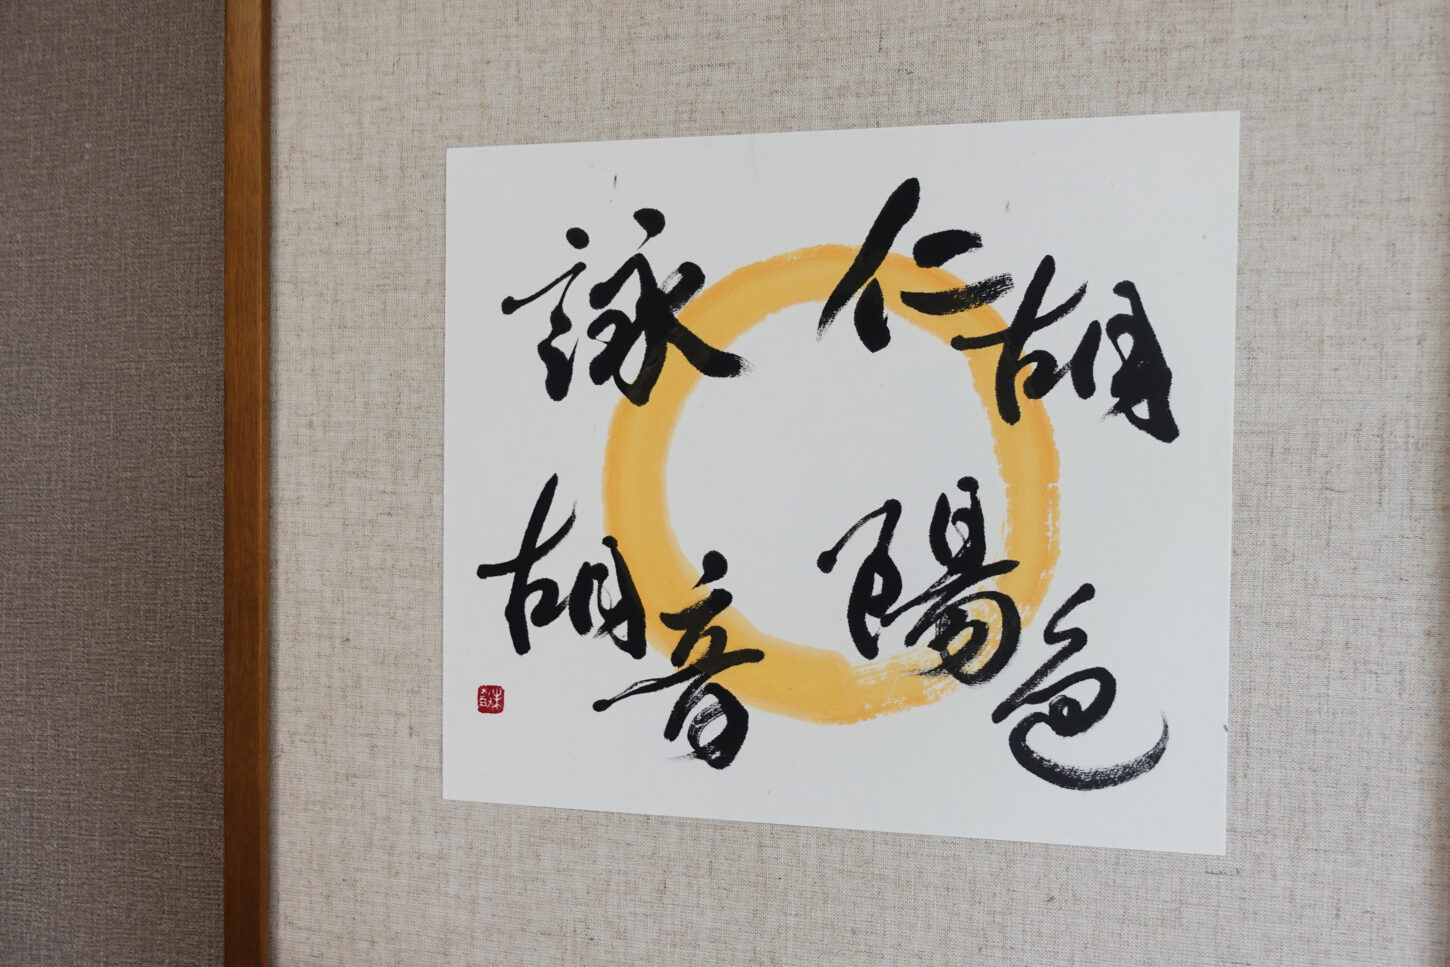 仁胡
陽色
詠
胡音